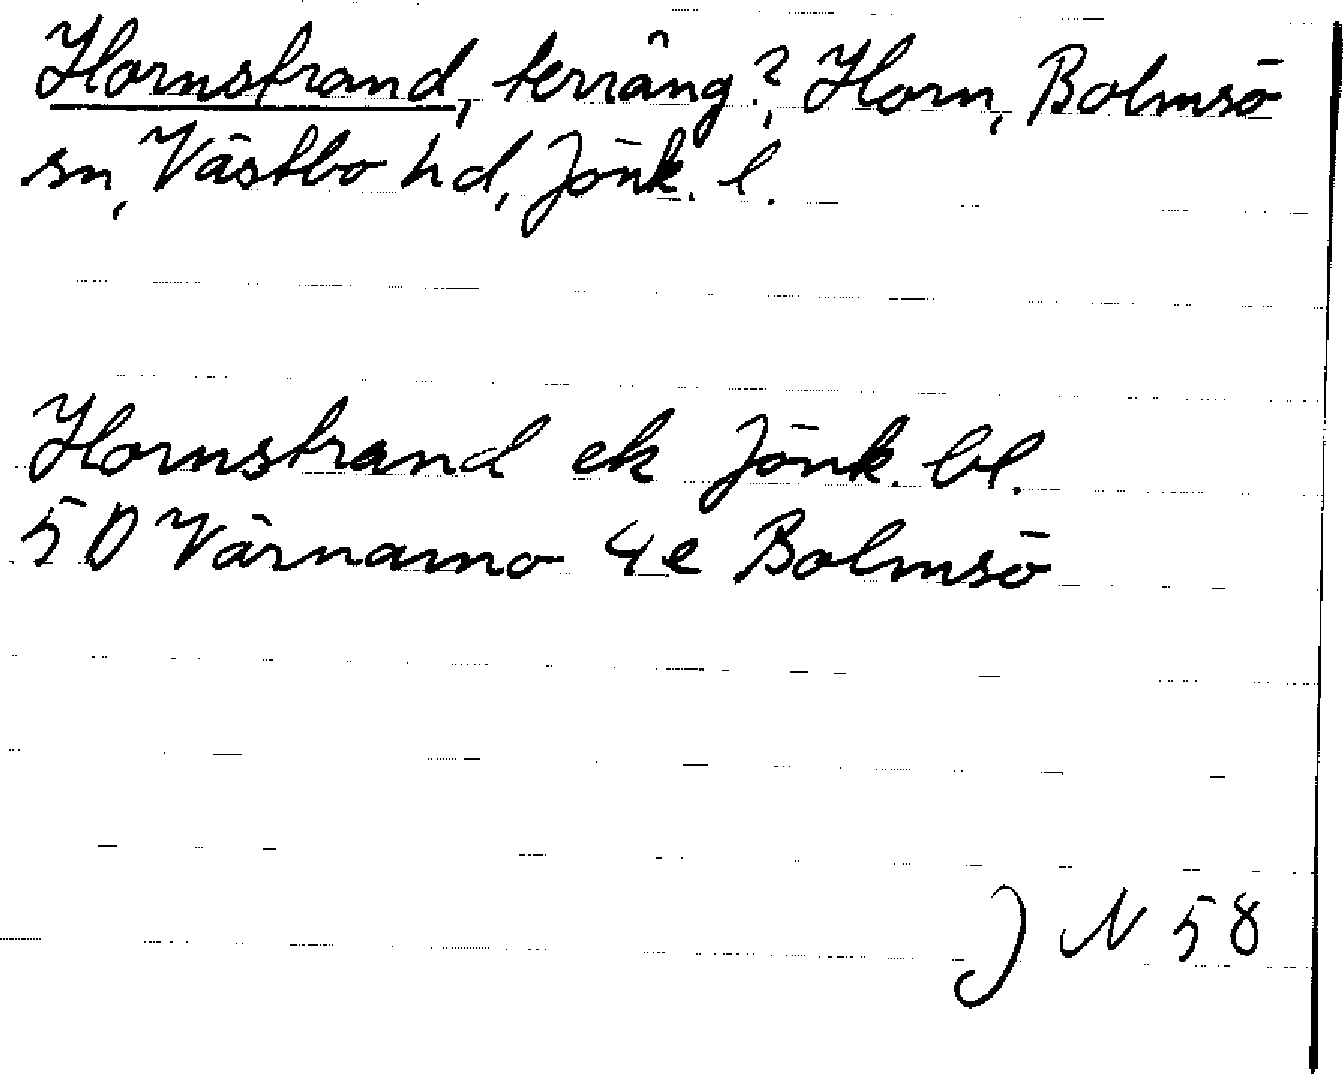 Hornstrand, terräng?, Horn, Bolmsö
sn, Västbo hd, Jönk. l.
Hornstrand ek Jönk. bl.
5D Värnamo 4e Bolmsö
J N 58